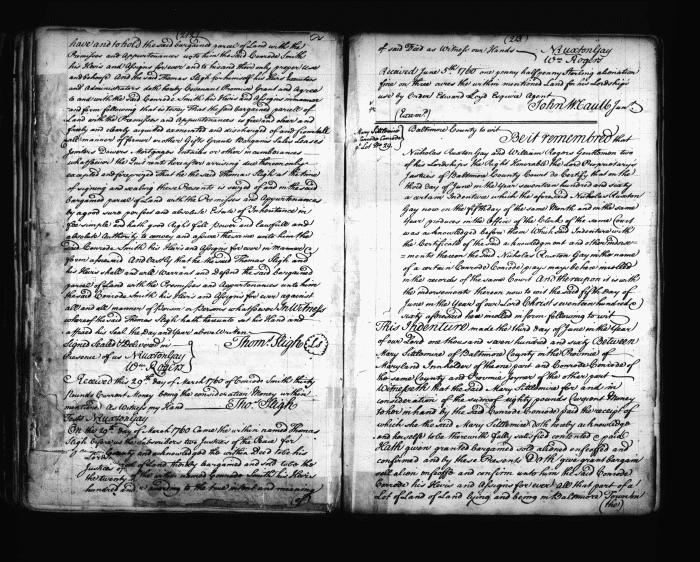 (212)
have and to hold the said bargained parcel of Land with the
Premisses and Appurtenances unto him the said Conrode Smith
his Heirs and Assigns for ever and to his and their only proper use
and behoof And the said Thomas Sligh for himself his Heirs Executors
and Administrators doth hereby Covenant Promise Grant and agree
to and with the said Conrode Smith his Heirs and Assigns in manner
and form following that is to say That the said bargained parcel of
Land with the Premisses and Appurtenances is free and clear and
freely and clearly acquitted exonerated and discharged of and from all
all manner of former other Gifts Grants Bargains Sales Leases
Jointures Dowers Mortgages Intails or other incumbrances
whatsoever the Quit rents hereafter arriving due thereon only
excepted and foreprized That he the said Thomas Sligh at the time
of signing and sealing these Presents is seized of and in the said
bargained parcel of Land with the Premisses and Appurtenances
by a good sure perfect and absolute Estate of Inheritance in
Fee simple and hath good Right full power and lawfull and
absolute Authority to convey and assure the same unto him the
said Conrode Smith his Heirs and Assigns for ever in Manner &
form aforesaid And Lastly that he the said Thomas Sligh and
his Heirs shall and will Warrant and Defend the said bargained
parcel of Land with the Premisses and Appurtenances unto him
the said Conrode Smith his Heirs and Assigns for ever against
all and all manner of Person or Persons whatsoever In Witness
whereof the said Thomas Sligh hath hereunto set his Hand and
affixed his Seal the Day and Year above Written
Signed Sealed & Delivered in
Presence of us N Ruxton Gay
Wm Rogers
Thomas Sligh
Received this 29th Day of March 1760 of Conrode Smith thirty
Pounds Current Money being the consideration Money within
mentioned As Witness my Hand
Tho: Sligh
Teste N Ruxton Gay
On the 29th Day of March 1760 Came the within named Thomas
Sligh before us the Subscribers two Justices of the Peace for
County and acknowledged the within Deed to be his
of Land thereby bargained and sold to be the
the within named Conrode Smith his Heirs
according to the true intent and meaning
of
(213)
of said Deed as Witness our Hands
N Ruxton Gay
Wm Rogers
Received June 5th 1760 one penny half penny Sterling alienation
fine on three acres the within mentioned Land for his Lordships
use by Order Edward Lloyd Esquire Agent
John McCaulb Junr
(Examd)
Mary Sittlemore
Conrode Conrode
of Lot No 59
Baltimore County to wit
Be it remembred that
Nicholas Ruxton Gay and William Rogers Gentlemen two
of his Lordships the Right Honorable the Lord Proprietarys
Justices of Baltimore County Court do Certify that on the
third Day of June in the Year seventeen hundred and sixty
a certain Indenture which the aforesaid Nicholas Ruxton
Gay now on the fifth day of the same Month and in the same
Year produces in the Office of the Clerk of the same Court
was acknowledged before them Which said Indenture with
the Certificate of the said acknowledgment and other indorse=
=ments thereon the said Nicholas Ruxton Gay in the name
of a certain Conrode Conrode prays may be here inrolled
in the records of the same Court And thereupon it is with
the indorsements thereon now to wit the said fifth Day of
June in the Year of our Lord Christ seventeen hundred &
sixty aforesaid here inrolled in form following to wit
This Indenture made the third Day of June in the Year
of our Lord one thousand seven hundred and sixty Between
Mary Sittlemore of Baltimore County in the Province of
Maryland Innholder of the one part and Conrode Conrode of
the same County and Province Joyner of the other part
Witnesseth that the said Mary Sittlemore for and in
consideration of the sum of eighty pounds Current Money
to her in hand by the said Conrode Conrode paid the receipt of
which she the said Mary Sittlemore Doth hereby acknowledge
and herself to be therewith fully satisfied contented & paid
Hath given granted bargained sold aliened enfeoffed and
confirmed and by these Presents Doth give grant bargain
sell alien enfeoffe and confirm unto him the said Conrode
Conrode his Heirs and Assigns for ever all that part of a
Lot of Land of Land lying and being in Baltimore Town on
(the)